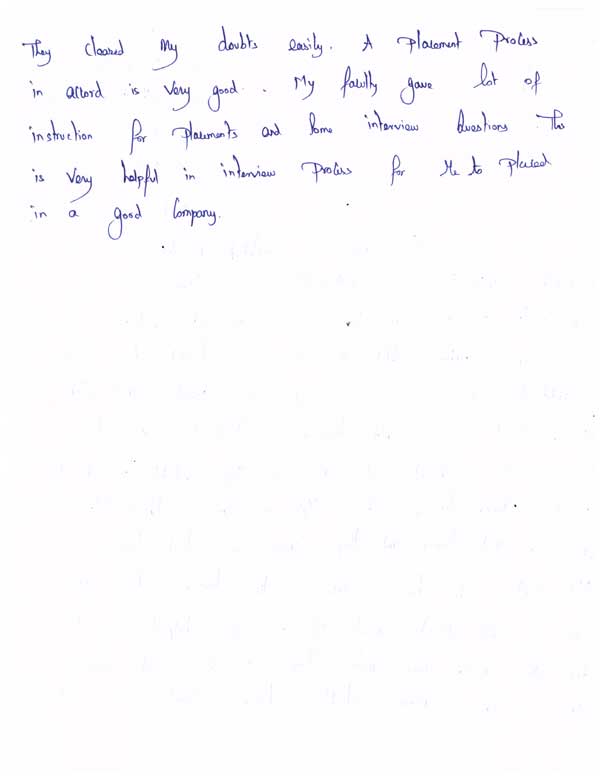 They cleared My doubts easily. A placement Process
in accord is very good. My faculty gave lot of
instruction for placements and Some interview Questions This
is very helpful in interview Process for Me to placed
in a good Company.